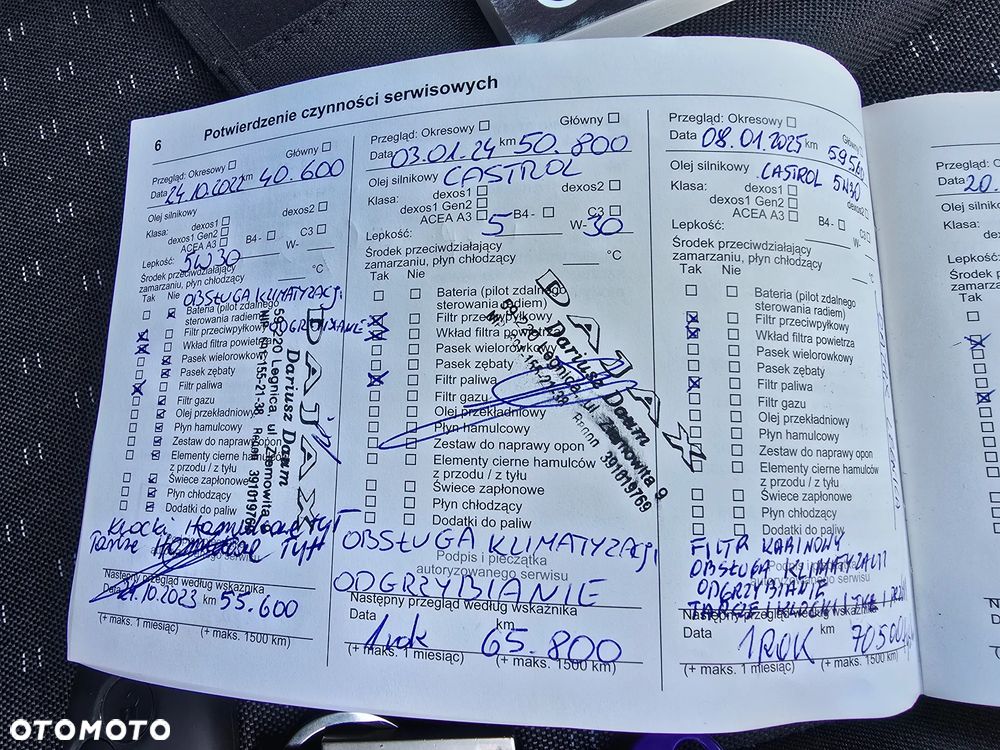 6 Potwierdzenie czynności serwisowych
Przegląd: Okresowy Główny
Data 24.10.2022 km 40.600
Olej silnikowy
Klasa: dexos1 dexos2
dexos1 Gen2
ACEA A3 B4- C3
Lepkość: 5W30 W-
Środek przeciwdziałający
zamarzaniu, płyn chłodzący °C
Tak Nie OBSŁUGA KLIMATYZACJI
Bateria (pilot zdalnego
sterowania radiem) ODGRZYBIANIE
Filtr przeciwpyłkowy
Wkład filtra powietrza
Pasek wielorowkowy
Pasek zębaty
Filtr paliwa
Filtr gazu
Olej przekładniowy
Płyn hamulcowy
Zestaw do naprawy opon
Elementy cierne hamulców
z przodu / z tyłu
Świece zapłonowe
Płyn chłodzący
Dodatki do paliw
DAJAX
Dariusz Daum
59-220 Legnica, ul. Ziemowita
Klocki Hamulcowe TYŁ
Tarcze Hamulcowe TYŁ
Następny przegląd według wskaźnika
Data 24.10.2023 km 55.600
(+ maks. 1 miesiąc) (+ maks. 1500 km)
Przegląd: Okresowy Główny
Data 03.01.24 km 50.800
Olej silnikowy CASTROL
Klasa: dexos1 dexos2
dexos1 Gen2
ACEA A3 B4- C3
Lepkość: 5 W-30
Środek przeciwdziałający
zamarzaniu, płyn chłodzący °C
Tak Nie
Bateria (pilot zdalnego
sterowania radiem)
Filtr przeciwpyłkowy
Wkład filtra powietrza
Pasek wielorowkowy
Pasek zębaty
Filtr paliwa
Filtr gazu
Olej przekładniowy
Płyn hamulcowy
Zestaw do naprawy opon
Elementy cierne hamulców
z przodu / z tyłu
Świece zapłonowe
Płyn chłodzący
Dodatki do paliw
DAJAX
Dariusz Daum
59-220 Legnica, ul. Ziemowita 9
391019769
OBSŁUGA KLIMATYZACJI
Podpis i pieczątka
autoryzowanego serwisu
ODGRZYBIANIE
Następny przegląd według wskaźnika
Data 1 rok km 65.800
(+ maks. 1 miesiąc) (+ maks. 1500 km)
Przegląd: Okresowy
Data 08.01.2025 km
Olej silnikowy CASTROL 5W30
Klasa: dexos1 dexos2
dexos1 Gen2
ACEA A3 B4- C3
Lepkość: W-
Środek przeciwdziałający
zamarzaniu, płyn chłodzący °C
Tak Nie
Bateria (pilot zdalnego
sterowania radiem)
Filtr przeciwpyłkowy
Wkład filtra powietrza
Pasek wielorowkowy
Pasek zębaty
Filtr paliwa
Filtr gazu
Olej przekładniowy
Płyn hamulcowy
Zestaw do naprawy opon
Elementy cierne hamulców
z przodu / z tyłu
Świece zapłonowe
Płyn chłodzący
Dodatki do paliw
FILTR KABINOWY
OBSŁUGA KLIMATYZACJI
ODGRZYBIANIE
Następny przegląd według
Data 1 ROK km
(+ maks. 1 miesiąc) (+ maks. 1500 km)
OTOMOTO